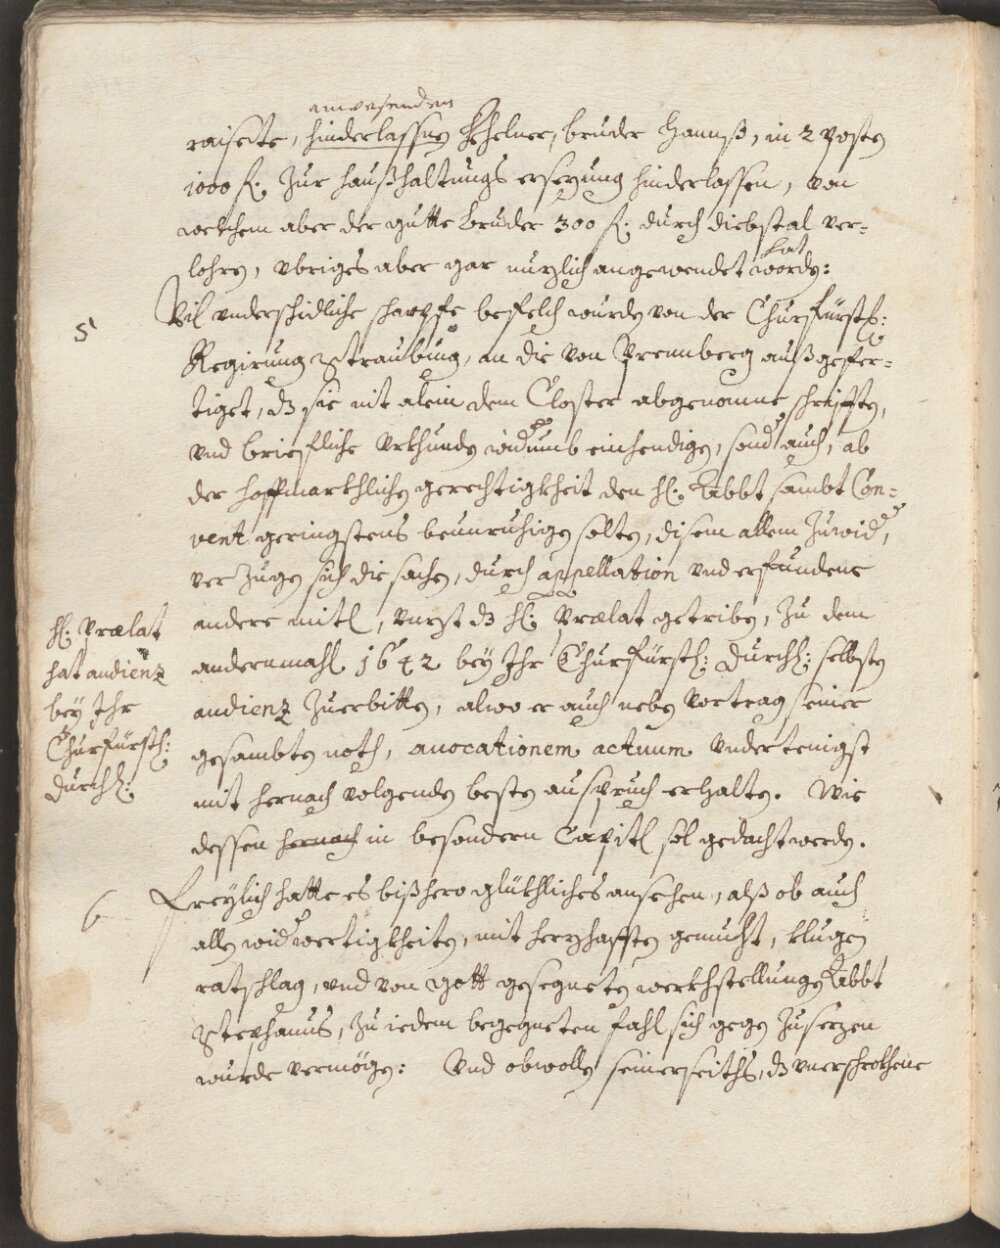 anwesenden
raisete, hinderlassnen Khelner, bruder Hannß, in 2 posten
1000 fl. Zur haußhaltungs ersezung hinderlassen, von
welchem aber der gutte bruder 300 fl. durch diebstal ver=
hat
lohrn, ybriges aber gar nuzlich angewendet worden:
5
Vil underschidliche scharpfe befelch wurden von der Churfürstl:
Regirung Straubing, an die von Prennberg außgefer=
tiget, dz sie nit alein dem Closter abgenomne schrifften,
und briefliche vrkhunden widerumb einhendigen, sonder auch, ab
der hoffmarkhlichen gerechtigkheit den hl: Abbt sambt Con=
vent geringstens beunruhigen solten, disem allem Zuwider,
verZugen sich die sachen, durch appellation und erfundene
andere mitl, dz hl: Prælat getriben, Zu dem
andernmahl 1642 bey Ihr Churfürstl: Durchl: selbsten
audienz Zuerbitten, alwo er auch neben vortrag seiner
gesambten noth, avocationem actuum undertenigst
mit hernach volgenden besten auspruch erhalten. Wie
dessen hernach in besondern Capitl sol gedacht werden.
hl: Prælat
hat audienz
bey Ihr
Churfürstl:
Durchl:
6
Freylich hatte es bißhero glükhliches ansehen, alß ob auch
allen widerwertigkheiten, mit herzhafften gemueht, klugen
ratschlag, und von gott gesegneten werkhstellungen Abbt
Stephanus, Zu iedem begegneten fahl sich gegen Zusezen
wurde vermögen: Und obwollen seinerseiths, dz unerschrokhene